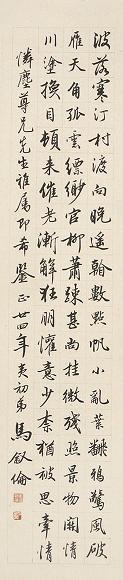 波落寒汀村渡向晚遙看數點帆小亂葉翻鴉驚風破
雁天角孤雲縹緲官柳蕭疎甚尚挂微微殘照景物關情
川塗換目頓來催老漸解狂朋懽意少奈猶被思牽情
憐塵尊兄先生雅屬即希鑒正廿四年夷初弟馬敘倫